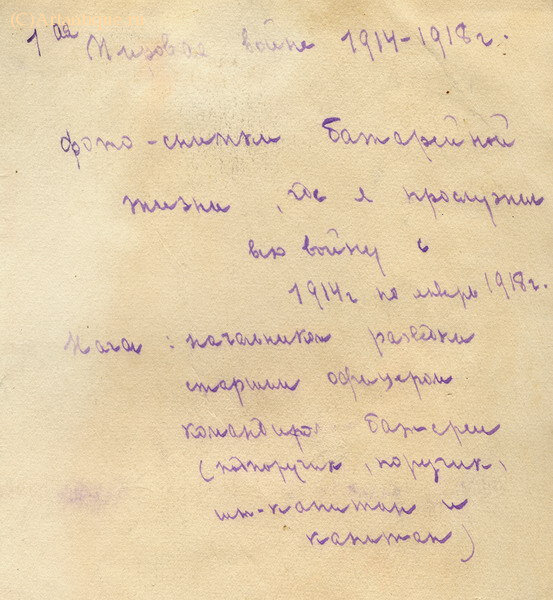 1ая Мировая война 1914-1918 г.
фото-снимки батарейной
жизни, где я прослужил
всю войну с
1914 г по январь 1918 г.
начальником разведки
старшим офицером
командиром батареи
(подпоручик, поручик,
шт-капитан и
капитан)